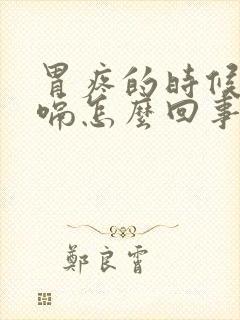 胃疼的時候
喘怎麼回事
鄭良霄